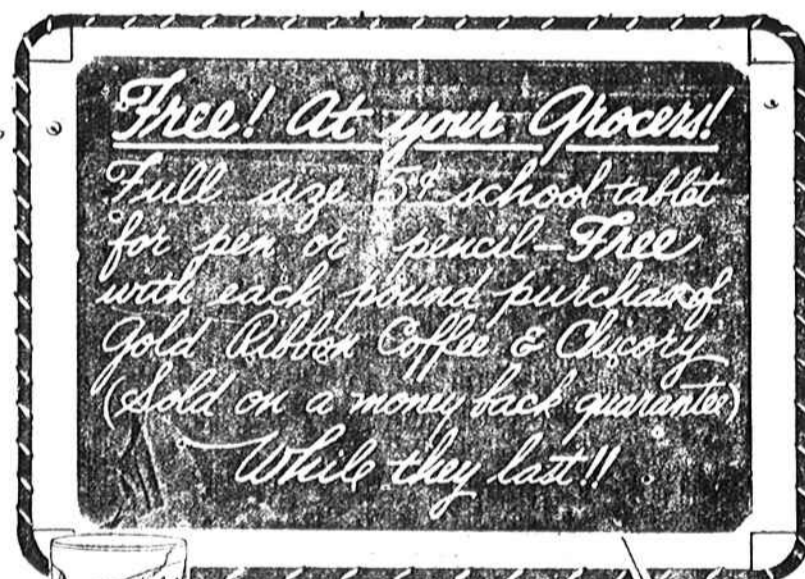 Free! At your Grocers!
Full size 5¢ school tablet
for pen or pencil - Free
with each pound purchase of
Gold Ribbon Coffee & Chicory
(Sold on a money back guarantee)
While they last!!